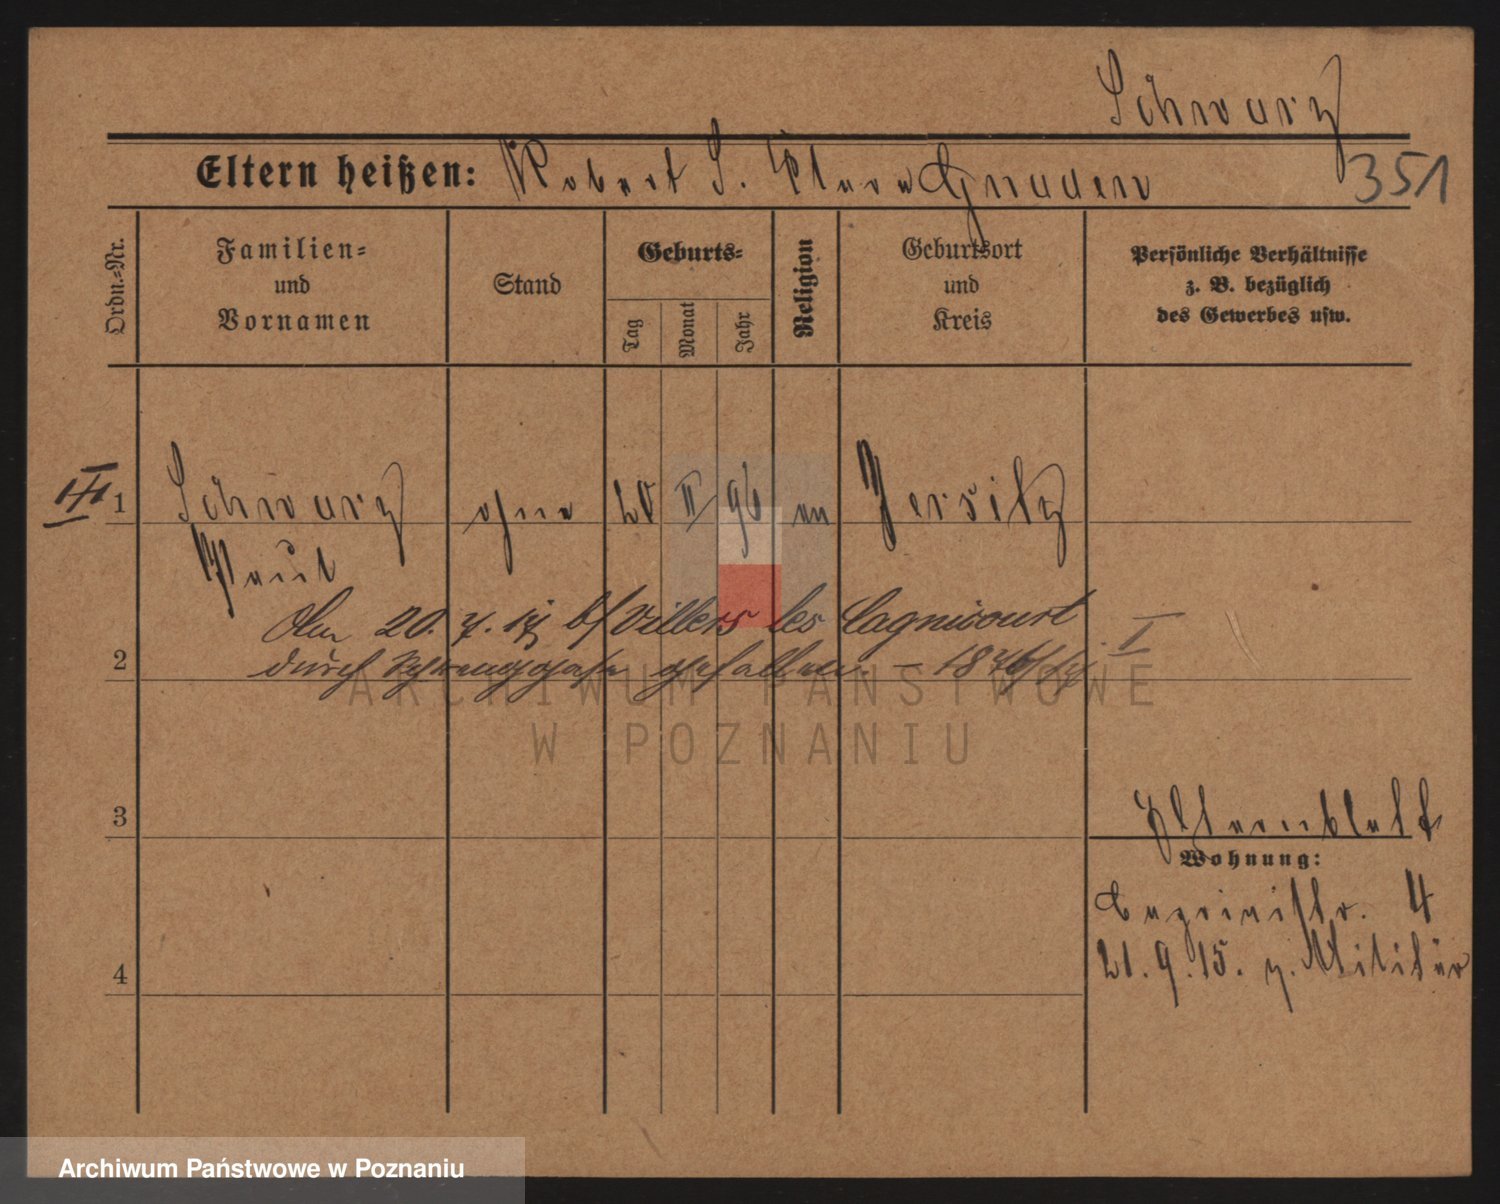 Schwarz
Eltern heißen: Robert S. Clara Gnauen
351
Ordn.-Nr.
Familien-
und
Vornamen
Stand
Geburts-
Tag
Monat
Jahr
Religion
Geburtsort
und
Kreis
Persönliche Verhältnisse
z. B. bezüglich
des Gewerbes usw.
III 1 Schwarz ohne 20 II 96 Jersitz
Paul
Am 20. 7. 17 b/ Villers les Cagnicourt
2 durch gefallen. – I
ARCHIWUM PAŃSTWOWE
W POZNANIU
3 Elternblatt
Wohnung:
4
21. 9. 15. z. Militär
4
Archiwum Państwowe w Poznaniu